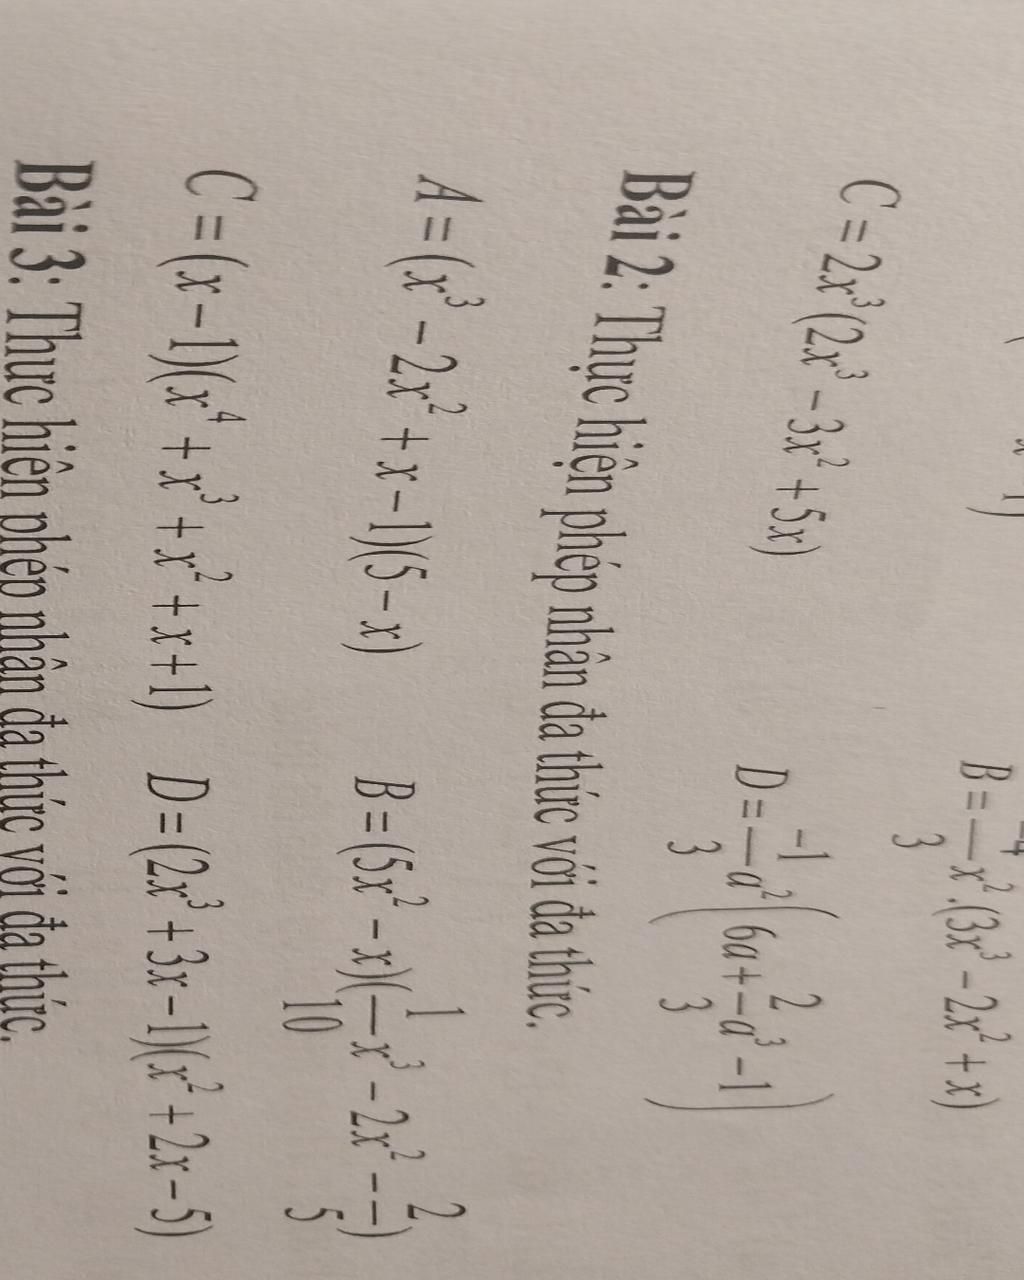 B = -4/3 x².(3x³ - 2x² + x)
C = 2x³(2x³ - 3x² + 5x) D = -1/3 a²(6a + 2/3 a³ - 1)
Bài 2: Thực hiện phép nhân đa thức với đa thức.
A = (x³ - 2x² + x - 1)(5 - x) B = (5x² - x)(1/10 x³ - 2x² - 2/5)
C = (x - 1)(x⁴ + x³ + x² + x + 1) D = (2x³ + 3x - 1)(x² + 2x - 5)
Bài 3: Thực hiện phép nhân đa thức với đa thức.